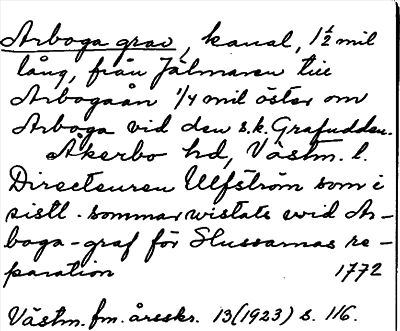 Arboga grav, kanal, 1½ mil
lång, från Jälmaren till
Arbogaån 1/4 mil öster om
Arboga vid den s.k. Grafudden.
Åkerbo hd, Västm. l.
Directeuren Ulfström som i
sistl. sommar wistats wid Ar-
boga-graf för Slussarnas re-
paration 1772
Västm. fm. årsskr. 13(1923) s. 116.